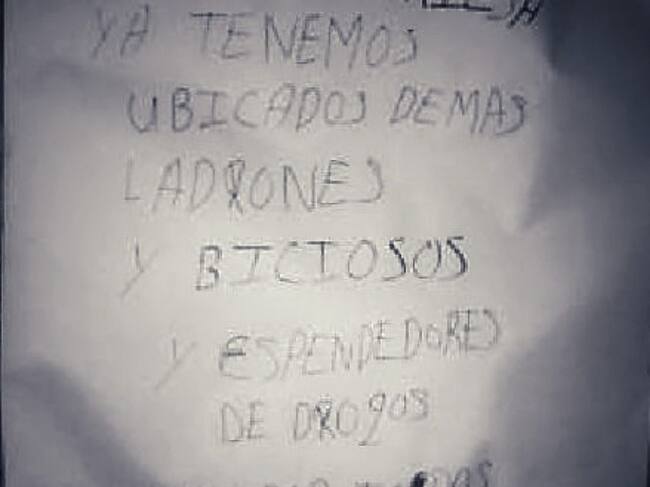 YA TENEMOS
UBICADOS DEMAS
LADRONES
Y BICIOSOS
Y ESPENDEDORES
DE DROGOS